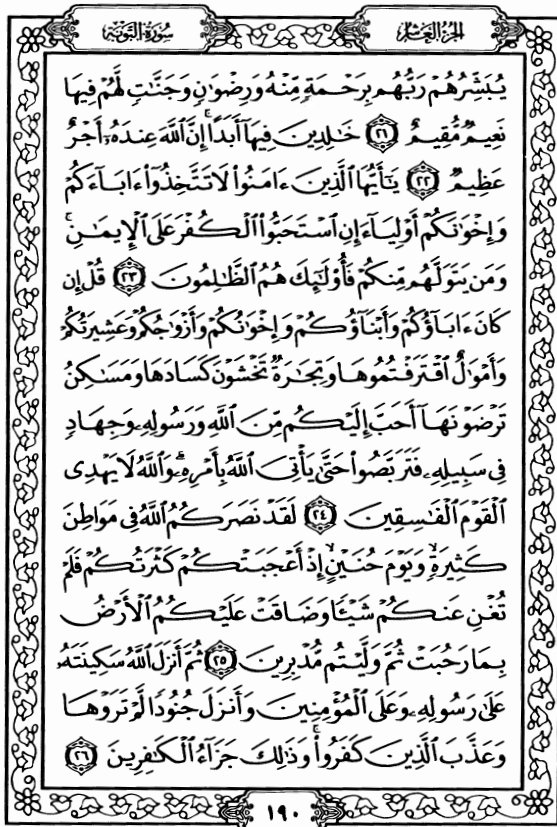 سُورَةُ التَّوْبَةِ
الجُزْءُ العَاشِرُ
يُبَشِّرُهُمْ رَبُّهُم بِرَحْمَةٍ مِّنْهُ وَرِضْوَٰنٍ وَجَنَّـٰتٍ لَّهُمْ فِيهَا
نَعِيمٌ مُّقِيمٌ ٢١ خَـٰلِدِينَ فِيهَآ أَبَدًا ۚ إِنَّ ٱللَّهَ عِندَهُۥٓ أَجْرٌ
عَظِيمٌ ٢٢ يَـٰٓأَيُّهَا ٱلَّذِينَ ءَامَنُوا۟ لَا تَتَّخِذُوٓا۟ ءَابَآءَكُمْ
وَإِخْوَٰنَكُمْ أَوْلِيَآءَ إِنِ ٱسْتَحَبُّوا۟ ٱلْكُفْرَ عَلَى ٱلْإِيمَـٰنِ ۚ
وَمَن يَتَوَلَّهُم مِّنكُمْ فَأُو۟لَـٰٓئِكَ هُمُ ٱلظَّـٰلِمُونَ ٢٣ قُلْ إِن
كَانَ ءَابَآؤُكُمْ وَأَبْنَآؤُكُمْ وَإِخْوَٰنُكُمْ وَأَزْوَٰجُكُمْ وَعَشِيرَتُكُمْ
وَأَمْوَٰلٌ ٱقْتَرَفْتُمُوهَا وَتِجَـٰرَةٌ تَخْشَوْنَ كَسَادَهَا وَمَسَـٰكِنُ
تَرْضَوْنَهَآ أَحَبَّ إِلَيْكُم مِّنَ ٱللَّهِ وَرَسُولِهِۦ وَجِهَادٍ
فِى سَبِيلِهِۦ فَتَرَبَّصُوا۟ حَتَّىٰ يَأْتِىَ ٱللَّهُ بِأَمْرِهِۦ ۗ وَٱللَّهُ لَا يَهْدِى
ٱلْقَوْمَ ٱلْفَـٰسِقِينَ ٢٤ لَقَدْ نَصَرَكُمُ ٱللَّهُ فِى مَوَاطِنَ
كَثِيرَةٍ ۙ وَيَوْمَ حُنَيْنٍ ۙ إِذْ أَعْجَبَتْكُمْ كَثْرَتُكُمْ فَلَمْ
تُغْنِ عَنكُمْ شَيْـًٔا وَضَاقَتْ عَلَيْكُمُ ٱلْأَرْضُ
بِمَا رَحُبَتْ ثُمَّ وَلَّيْتُم مُّدْبِرِينَ ٢٥ ثُمَّ أَنزَلَ ٱللَّهُ سَكِينَتَهُۥ
عَلَىٰ رَسُولِهِۦ وَعَلَى ٱلْمُؤْمِنِينَ وَأَنزَلَ جُنُودًا لَّمْ تَرَوْهَا
وَعَذَّبَ ٱلَّذِينَ كَفَرُوا۟ ۚ وَذَٰلِكَ جَزَآءُ ٱلْكَـٰفِرِينَ ٢٦
١٩٠